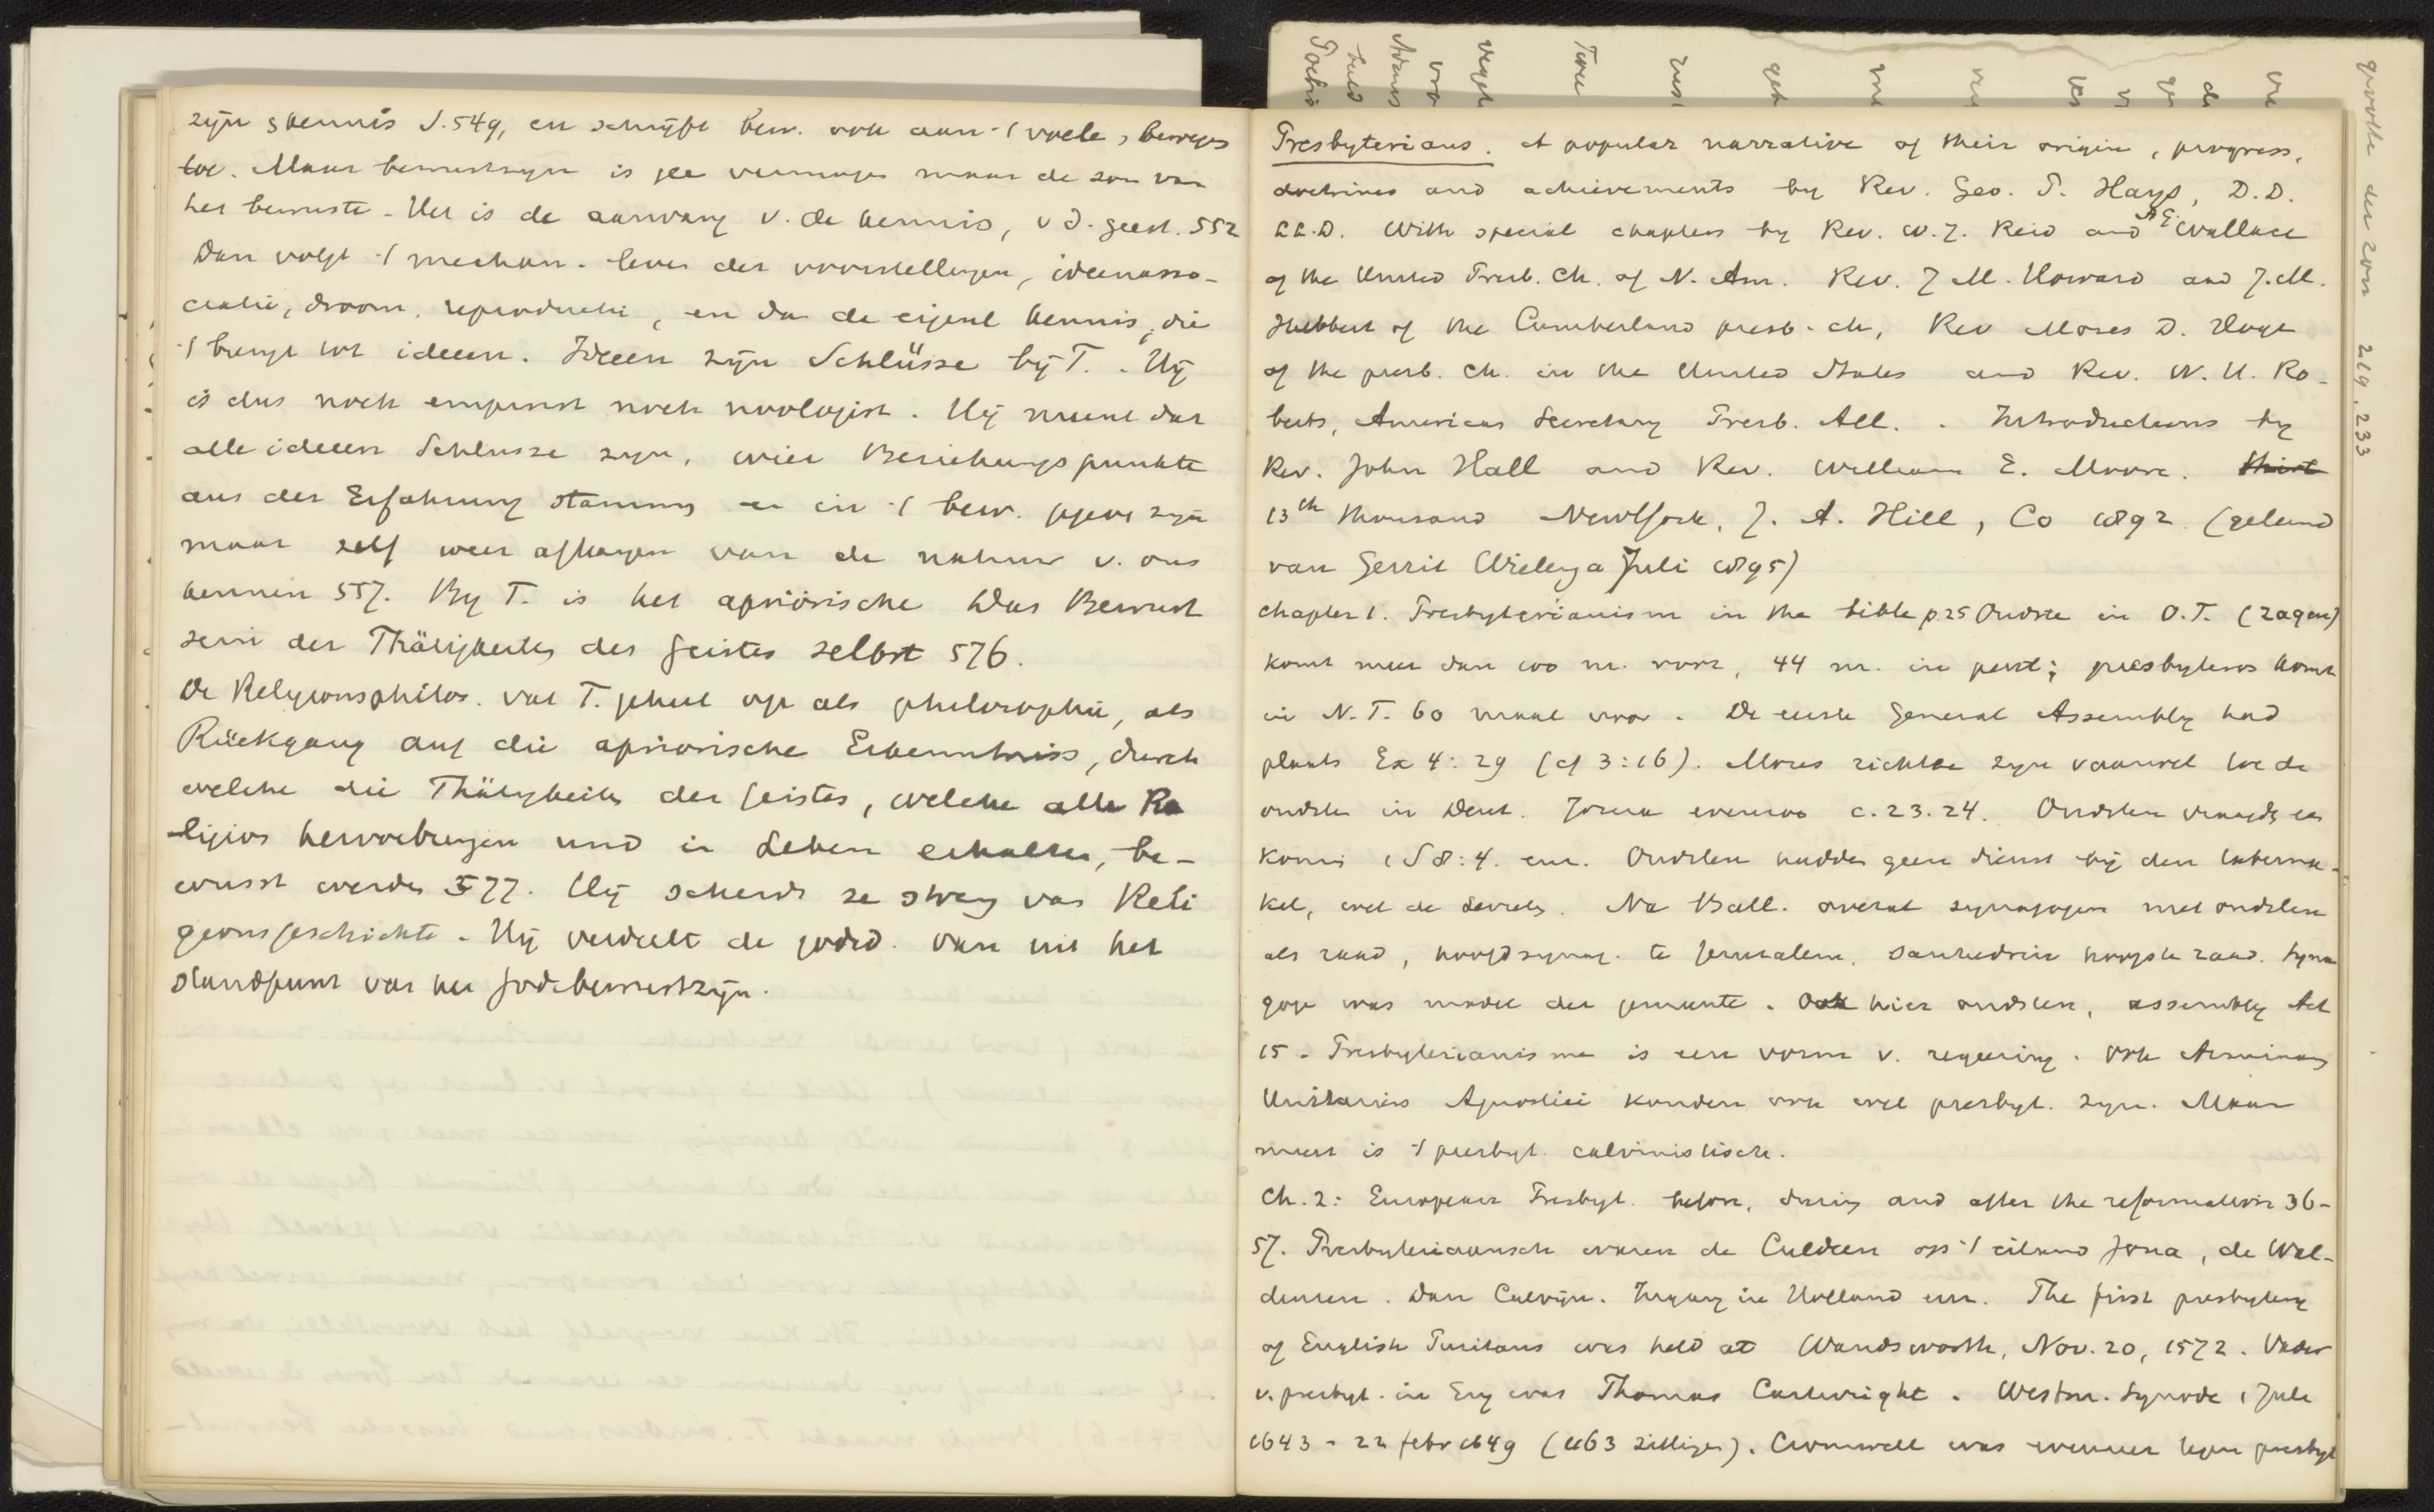 zijn kennis S. 549, en schrijft bew. ook aan 't voele, beweges
toe. Maar bewustzijn is gee vermogen maar de som van
het bewuste. Het is de aanvang v. de kennis, v d. geest. 552
Dan volgt 't mechan. leven der voorstellingen, ideenasso-
ciatie, droom, reproductie, en dan de eigenl kennis, die
't brengt tot ideeen. Ideeen zijn Schlüsse bij T. . Hij
is dus noch empirist noch noologist. Hij meent dat
alle ideeen Schlusse zijn, wier Beziehungspunkte
aus der Erfahrung stammen en in 't bew. gegeve zijn
maar zelf weer afhangen van de natuur v. ons
kennen 557. By T. is het apriorische das Bewusst
sein der Thätigkeiten des Geistes selbst 576.
De Religionsphilos. vat T. geheel op als philosophie, als
Rückgang auf die apriorische Erkenntniss, durch
welche die Thätigkeiten des Geistes, welche alle Re
ligion hervorbringen und in Leben erhalten, be-
wusst werden 577. Hij scheidt ze streng van Reli
gionsgeschichte. Hij verdeelt de godsd. van uit het
standpunt van het godsbewustzijn.
Presbyterians. A popular narrative of their origin, progress,
doctrines and achievements by Rev. Geo. P. Hays, D.D.
LL.D. With special chapters by Rev. W. J. Reid and A G. Wallace
of the United Presb. Ch. of N. Am. Rev. J M. Howard and J. M.
Hubbert of the Cumberland presb. ch, Rev Moses D. Hoge
of the presb. Ch. in the United States and Rev. W. H. Ro-
berts, American Secretary Presb. All. . Introductions by
Rev. John Hall and Rev. William E. Moore.
13th thousand New York, J. A. Hill, Co 1892. (geleend
van Gerrit Wielenga Juli 1895)
Chapter 1. Presbyterianism in the bible p 25 Oudste in O.T. (zaqen)
komt meer dan 100 m. voor, 44 m. in pent; presbyteros komt
in N.T. 60 maal voor. De eerste General Assembly had
plaats Ex 4:29 (cf 3:16). Mozes richtte zijn vaarwel toe de
oudsten in Deut. Jozua evenzoo c. 23. 24. Oudsten vraagde en
koning 1 S 8:4. enz. Oudsten hadden geen dienst bij den taberna-
kel, wel de Levieten. Na Ball. overal synagogen met oudsten
als raad, hoofdsynag. te Jeruzalem, sanhedrin hoogste raad. Syna
goge was model der gemeente. Ook hier oudsten, assembly Act
15. Presbyterianisme is een vorm v. regeering. Ook Arminians
Unitariers Agnostici konden ook wel presbyt. zijn. Maar
meest is 't presbyt. calvinistisch.
Ch. 2: European Presbyt. before, during and after the reformation 36-
57. Presbyteriaansch waren de Culdeen op 't eiland Jona, de Wal-
densen. Dan Calvijn. Ingang in Holland enz. The first presbytery
of English Puritans was held at Wandsworth, Nov. 20, 1572. Vader
v. presbyt. in Eng was Thomas Cartwright. Westm. Synode 1 Juli
1643 - 22 febr 1649 (1163 zittingen). Cromwell was evenzeer tegen presbyt
der zon 219, 233